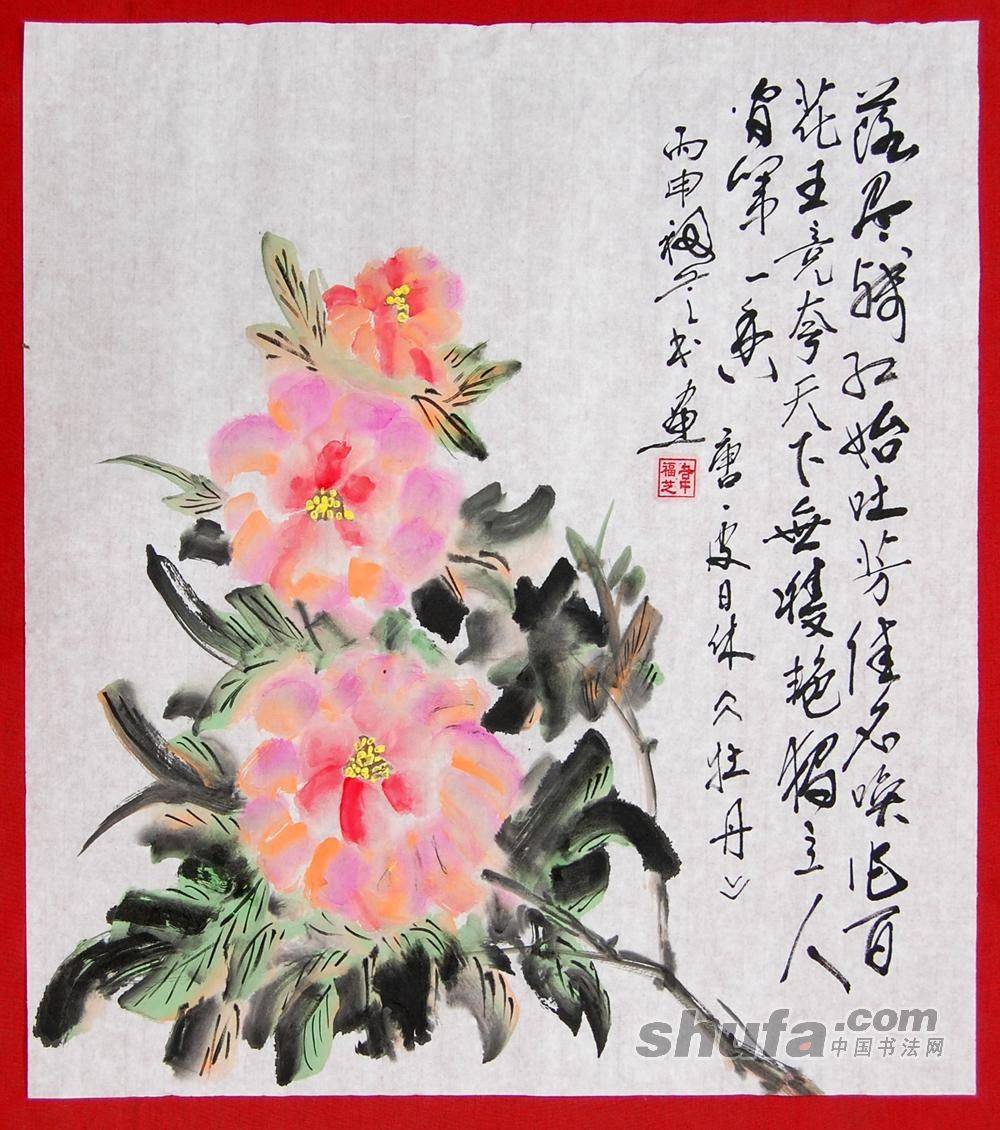 落尽残红始吐芳佳名唤作百
花王竞夸天下無雙艳独立人
间第一香 唐、皮日休《牡丹》
丙申福芝书画
福芝
shufa.com
中国书法网